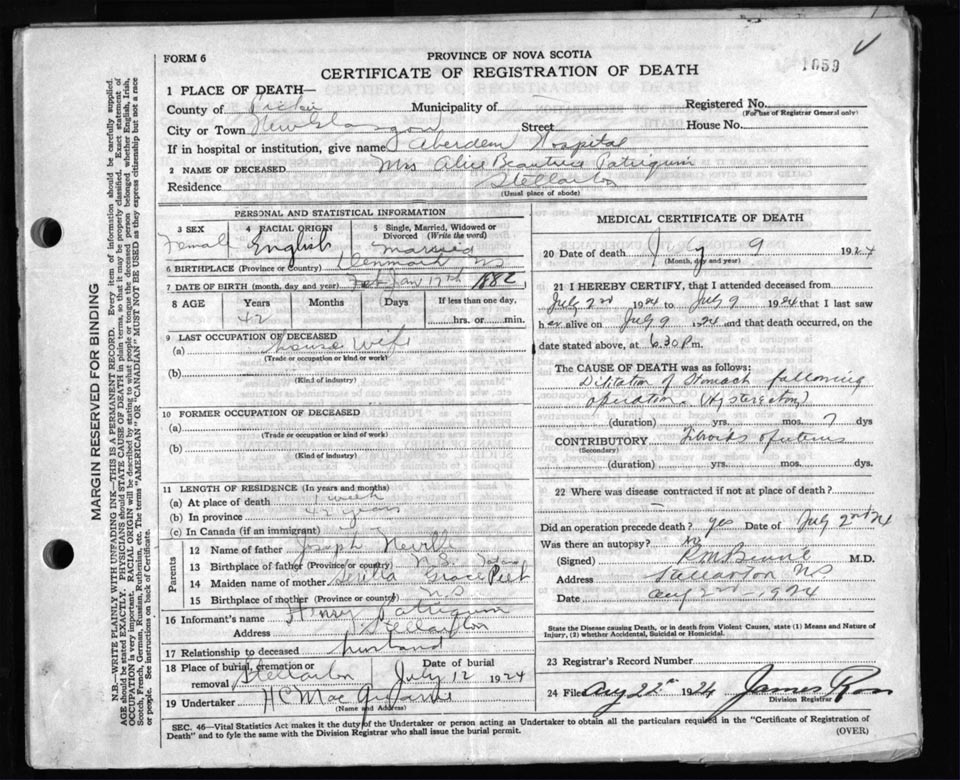 FORM 6
PROVINCE OF NOVA SCOTIA
1059
CERTIFICATE OF REGISTRATION OF DEATH
1 PLACE OF DEATH—
County of Pictou Municipality of Registered No.
(For use of Registrar General only)
City or Town New Glasgow Street House No.
If in hospital or institution, give name Aberdeen Hospital
2 NAME OF DECEASED Mrs Alice Beautrice Patriquin
Residence Stellarton
(Usual place of abode)
PERSONAL AND STATISTICAL INFORMATION
3 SEX 4 RACIAL ORIGIN 5 Single, Married, Widowed or Divorced (Write the word)
Female English Married
6 BIRTHPLACE (Province or Country) Denmark NS
7 DATE OF BIRTH (month, day and year) Jan 17th 1882
8 AGE Years Months Days If less than one day,
42 hrs. or min.
9 LAST OCCUPATION OF DECEASED
(a) house wife
(Trade or occupation or kind of work)
(b)
(Kind of industry)
10 FORMER OCCUPATION OF DECEASED
(a)
(Trade or occupation or kind of work)
(b)
(Kind of industry)
11 LENGTH OF RESIDENCE (In years and months)
(a) At place of death 1 week
(b) In province 42 years
(c) In Canada (if an immigrant)
Parents
12 Name of father Joseph Neville
13 Birthplace of father (Province or country) N.S.
14 Maiden name of mother Grace Peet
15 Birthplace of mother (Province or country) N S
16 Informant's name Henry Patriquin
Address Stellarton
17 Relationship to deceased husband
18 Place of burial, cremation or removal Stellarton Date of burial July 12 1924
19 Undertaker H C Mac
(Name and Address)
MEDICAL CERTIFICATE OF DEATH
20 Date of death July 9 1924
(Month, day and year)
21 I HEREBY CERTIFY, that I attended deceased from
July 2nd 1924 to July 9 1924 that I last saw
her alive on July 9 1924 and that death occurred, on
the date stated above, at 6.30 P.m.
The CAUSE OF DEATH was as follows:
Dilitation of Stomach following
operation. (Hysterectomy)
(duration) yrs. mos. 7 dys
CONTRIBUTORY Fibroids of uterus
(Secondary)
(duration) yrs. mos. dys.
22 Where was disease contracted if not at place of death?
Did an operation precede death? yes Date of July 2nd 24
Was there an autopsy? No
(Signed) M.D.
Address Stellarton NS
Date Aug 2nd - 1924
State the Disease causing Death, or in death from Violent Causes, state (1) Means and Nature of Injury, (2) whether Accidental, Suicidal or Homicidal.
23 Registrar's Record Number
24 Filed Aug 22nd 1924 James Ross
Division Registrar
SEC. 46—Vital Statistics Act makes it the duty of the Undertaker or person acting as Undertaker to obtain all the particulars required in the "Certificate of Registration of
Death" and to fyle the same with the Division Registrar who shall issue the burial permit.
(OVER)
MARGIN RESERVED FOR BINDING
N.B.—WRITE PLAINLY WITH UNFADING INK—THIS IS A PERMANENT RECORD. Every item of information should be carefully supplied.
AGE should be stated EXACTLY. PHYSICIANS should STATE CAUSE OF DEATH in plain terms, so that it may be properly classified. Exact statement of
OCCUPATION is very important. RACIAL ORIGIN will be described by stating to what people or tongue the deceased person belonged whether English, Irish,
Scotch, French, German, Russian, Ruthenian, etc. The terms "AMERICAN" OR "CANADIAN" MUST NOT BE USED as they express citizenship but not a race
or people. See instructions on back of Certificate.